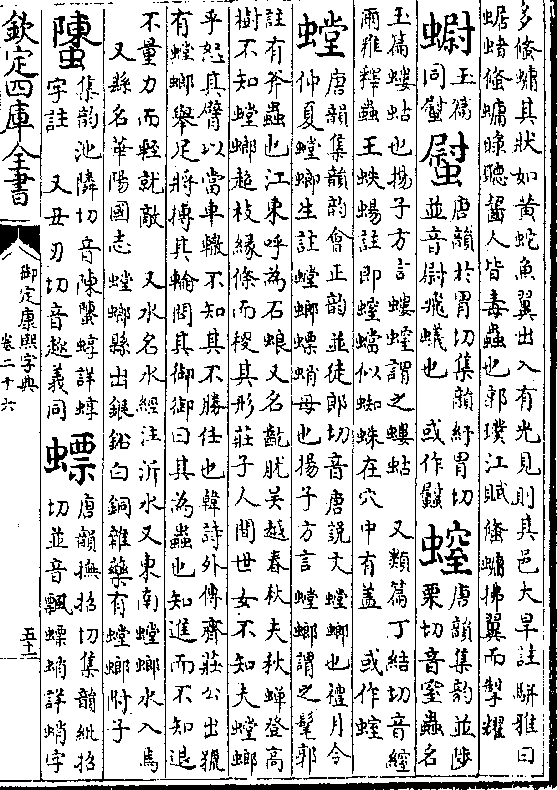 多鯈䗤其狀如黃蛇魚翼出入有光見則其邑大旱註駢雅曰
蜛蝫鯈䗤矇聽齧人皆毒蟲也郭璞江賦鯈䗤拂翼而掣耀
螱玉篇同𧕈 𧕈唐韻於胃切集韻紆胃切並音尉飛螘也 或作螱 螲唐韻集韻並陟栗切音窒蟲名
玉篇螻蛄也揚子方言螻螲謂之螻蛄 又類篇丁結切音絰
爾雅釋蟲王蛈蝪註即螲蟷似蜘蛛在穴中有蓋 或作蛭
螳唐韻集韻韻會正韻並徒郎切音唐說文螳螂也禮月令仲夏螳螂生註螳螂螵蛸母也揚子方言螳螂謂之髦郭
註有斧蟲也江東呼為石蜋又名齕肬吳越春秋夫秋蟬登高
樹不知螳螂超枝緣條而稷其形莊子人間世女不知夫螳螂
乎怒其臂以當車轍不知其不勝任也韓詩外傳齊莊公出獵
有螳螂舉足將搏其輪問其御御曰其為蟲也知進而不知退
不量力而輕就敵 又水名水經注沂水又東南螳螂水入焉
又縣名華陽國志螳螂縣出銀鉛白銅雜藥有螳螂附子
螴集韻池隣切音陳螴蜳詳蜳字註 又丑刃切音趁義同 螵唐韻撫招切集韻紕招切並音飄螵蛸詳蛸字
欽定四庫全書
御定康熙字典
卷二十六
五十二